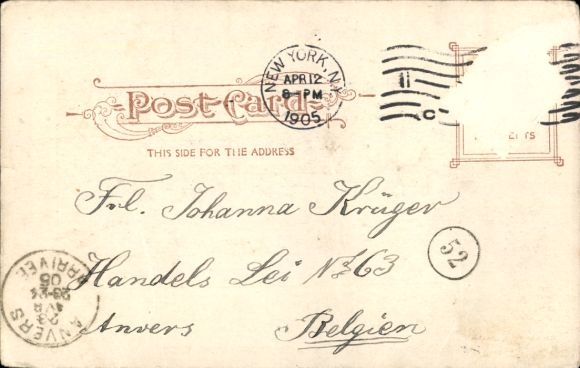 NEW YORK, N.Y.
APR 12
8-PM
1905
C
Post Card
THIS SIDE FOR THE ADDRESS
Frl. Johanna Krüger
Handels Lei No 63
Anvers Belgien
52
ANVERS
23
AVR
23-24
05
ARRIVEE